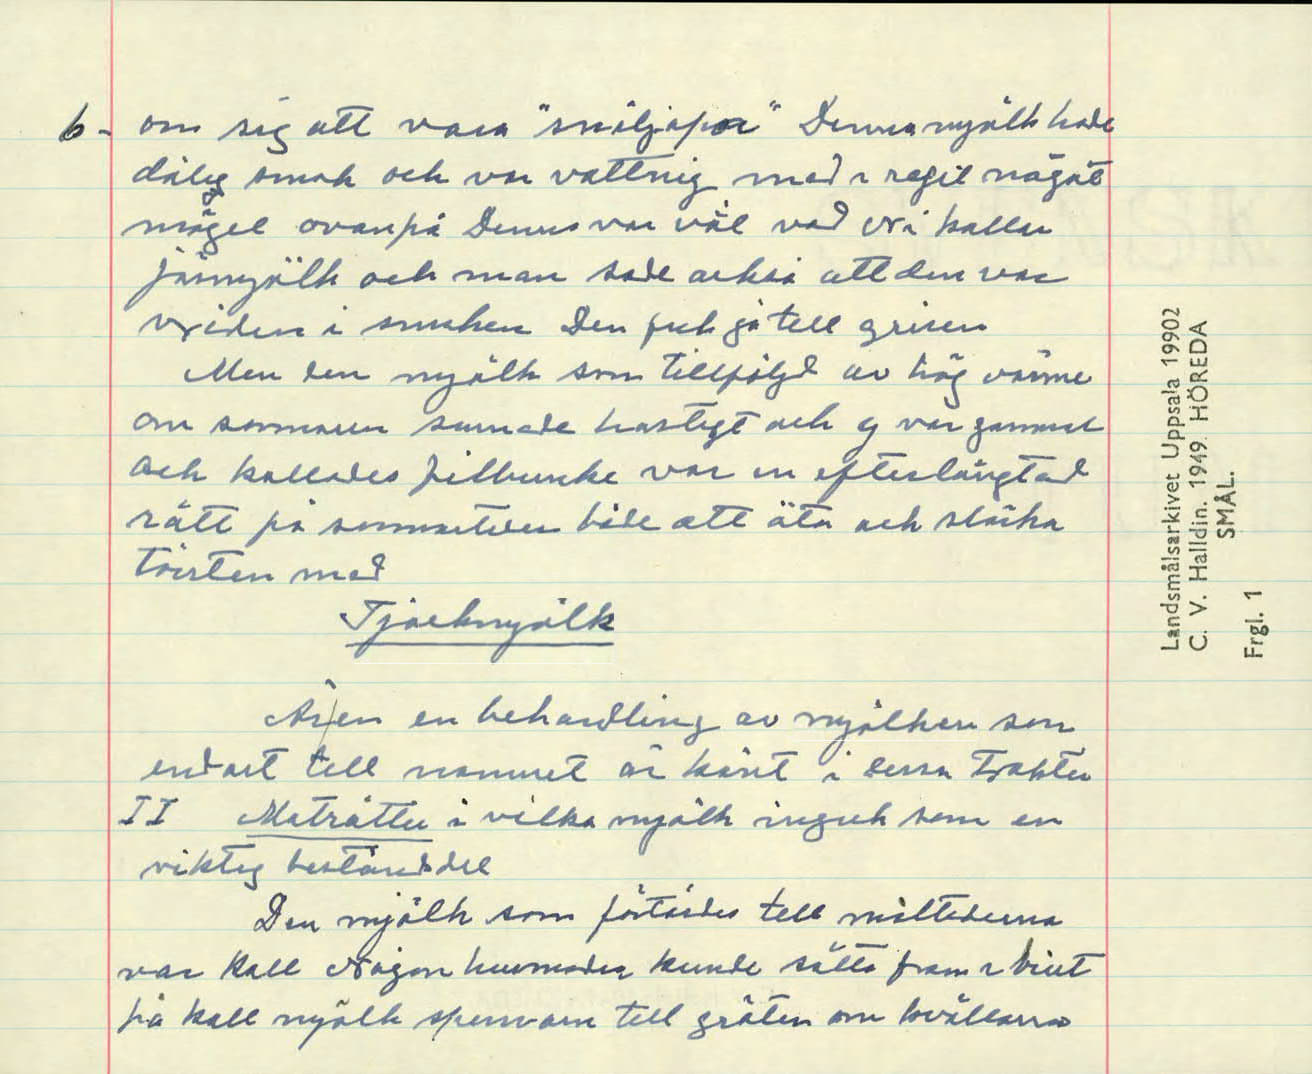 6- om sig att vara "snåljapor" Denna mjölk hade
dålig smak och var vattnig med i regel något
mögel ovanpå Denna var väl vad Ni kallar
jäsmjölk och man sade också att den var
vriden i smaken Den fick gå till grisen
Men den mjölk som tillföljd av hög värme
om sommaren surnade hastigt och ej var gammal
och kallades filbunke var en efterlängtad
rätt på sommartiden både att äta och släcka
törsten med
Tjockmjölk
Är en behandling av mjölken som
endast till namnet är känt i dessa trakter
II Maträtter i vilka mjölk ingick som en
viktig beståndsdel
Den mjölk som förtärdes till måltiderna
var kall Någon husmoder kunde sätta fram
på kall mjölk spenvarm till gröten om kvällarna
Landsmålsarkivet Uppsala 19902
C. V. Halldin. 1949. HÖREDA
SMÅL.
Frgl. 1